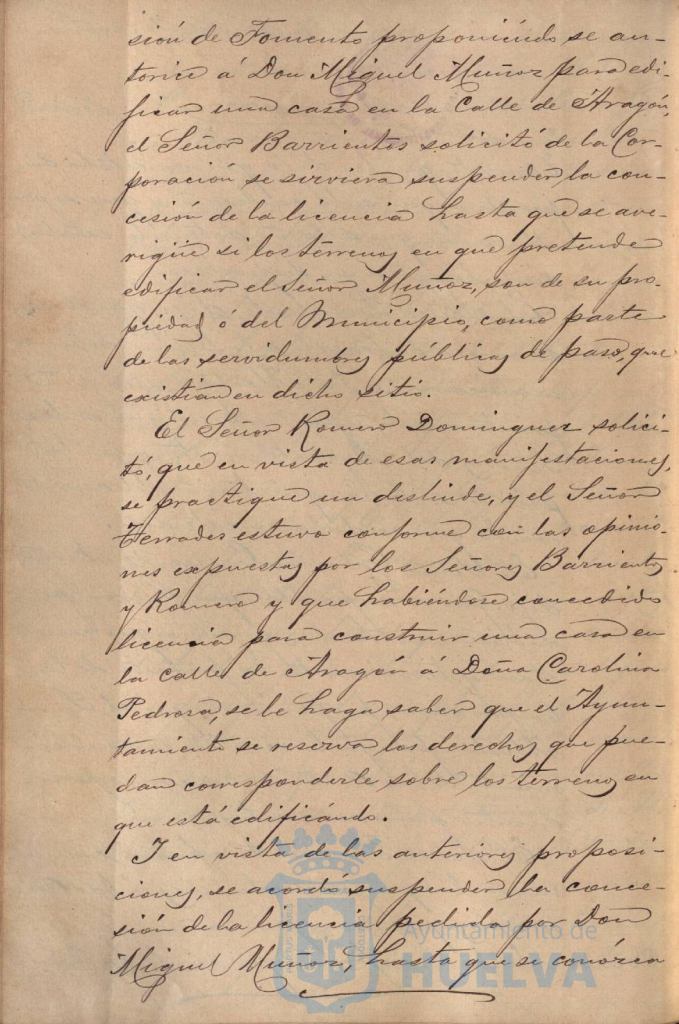 sión de Fomento proponiéndo se au-
torice á Don Miguel Muñoz para edi-
ficar una casa en la Calle de Aragón,
el Señor Barrientos solicitó de la Cor-
poración se sirviera suspender, la con-
cesión de la licencia hasta que se ave-
rigüe si los térrenos en que pretende
edificar el Señor Muñoz, son de su pro-
piedad ó del Municipio, como parte
de las servidumbres públicas de paso, que
existian en dicho sitio.
El Señor Romero Dominguez solici-
tó, que en vista de esas manifestaciones,
se practique un deslinde, y el Señor
Terrades estuvo conforme con las opinio-
nes expuestas por los Señores Barrientos
y Romero y que habiéndose concedido
licencia para construir una casa en
la calle de Aragón á Doña Carolina
Pedrosa, se le haga saber que el Ayun-
tamiento se reserva los derechos que pue-
dan corresponderle sobre los térrenos en
que está edificándo.
I en vista de las anteriores proposi-
ciones, se acordó suspender la conce-
sión de la licencia pedida por Don
Miguel Muñoz, hasta que se conózca
Ayuntamiento de
HUELVA